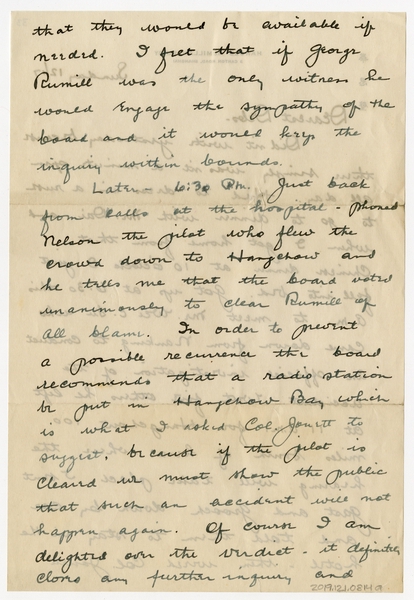 that they would be available if
needed. I felt that if George
Rumill was the only witness he
would engage the sympathy of the
board and it would keep the
inquiry within bounds.
Later - 6:30 PM. Just back
from calls at the hospital - phoned
Nelson the pilot who flew the
crowd down to Hangchow and
he tells me that the board voted
unanimously to clear Rumill of
all blame. In order to prevent
a possible recurrence the board
recommends that a radio station
be put in Hangchow Bay which
is what I asked Col. Jouett to
suggest, because if the pilot is
cleared we must show the public
that such an accident will not
happen again. Of course I am
delighted over the verdict - it definitely
closes any further inquiry and
2019.121.081419